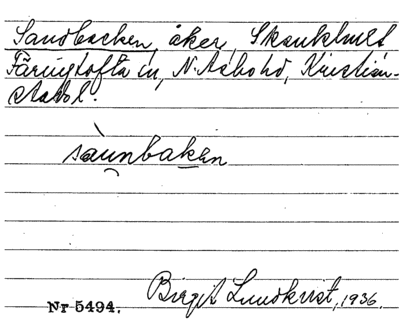 Sandbacken, åker, Skånklmst
Färingtofta sn, N. Åsbo hd, Kristian-
stads l.
sàunbakɘn
Birgit Lundkvist, 1936.
Nr 5494.